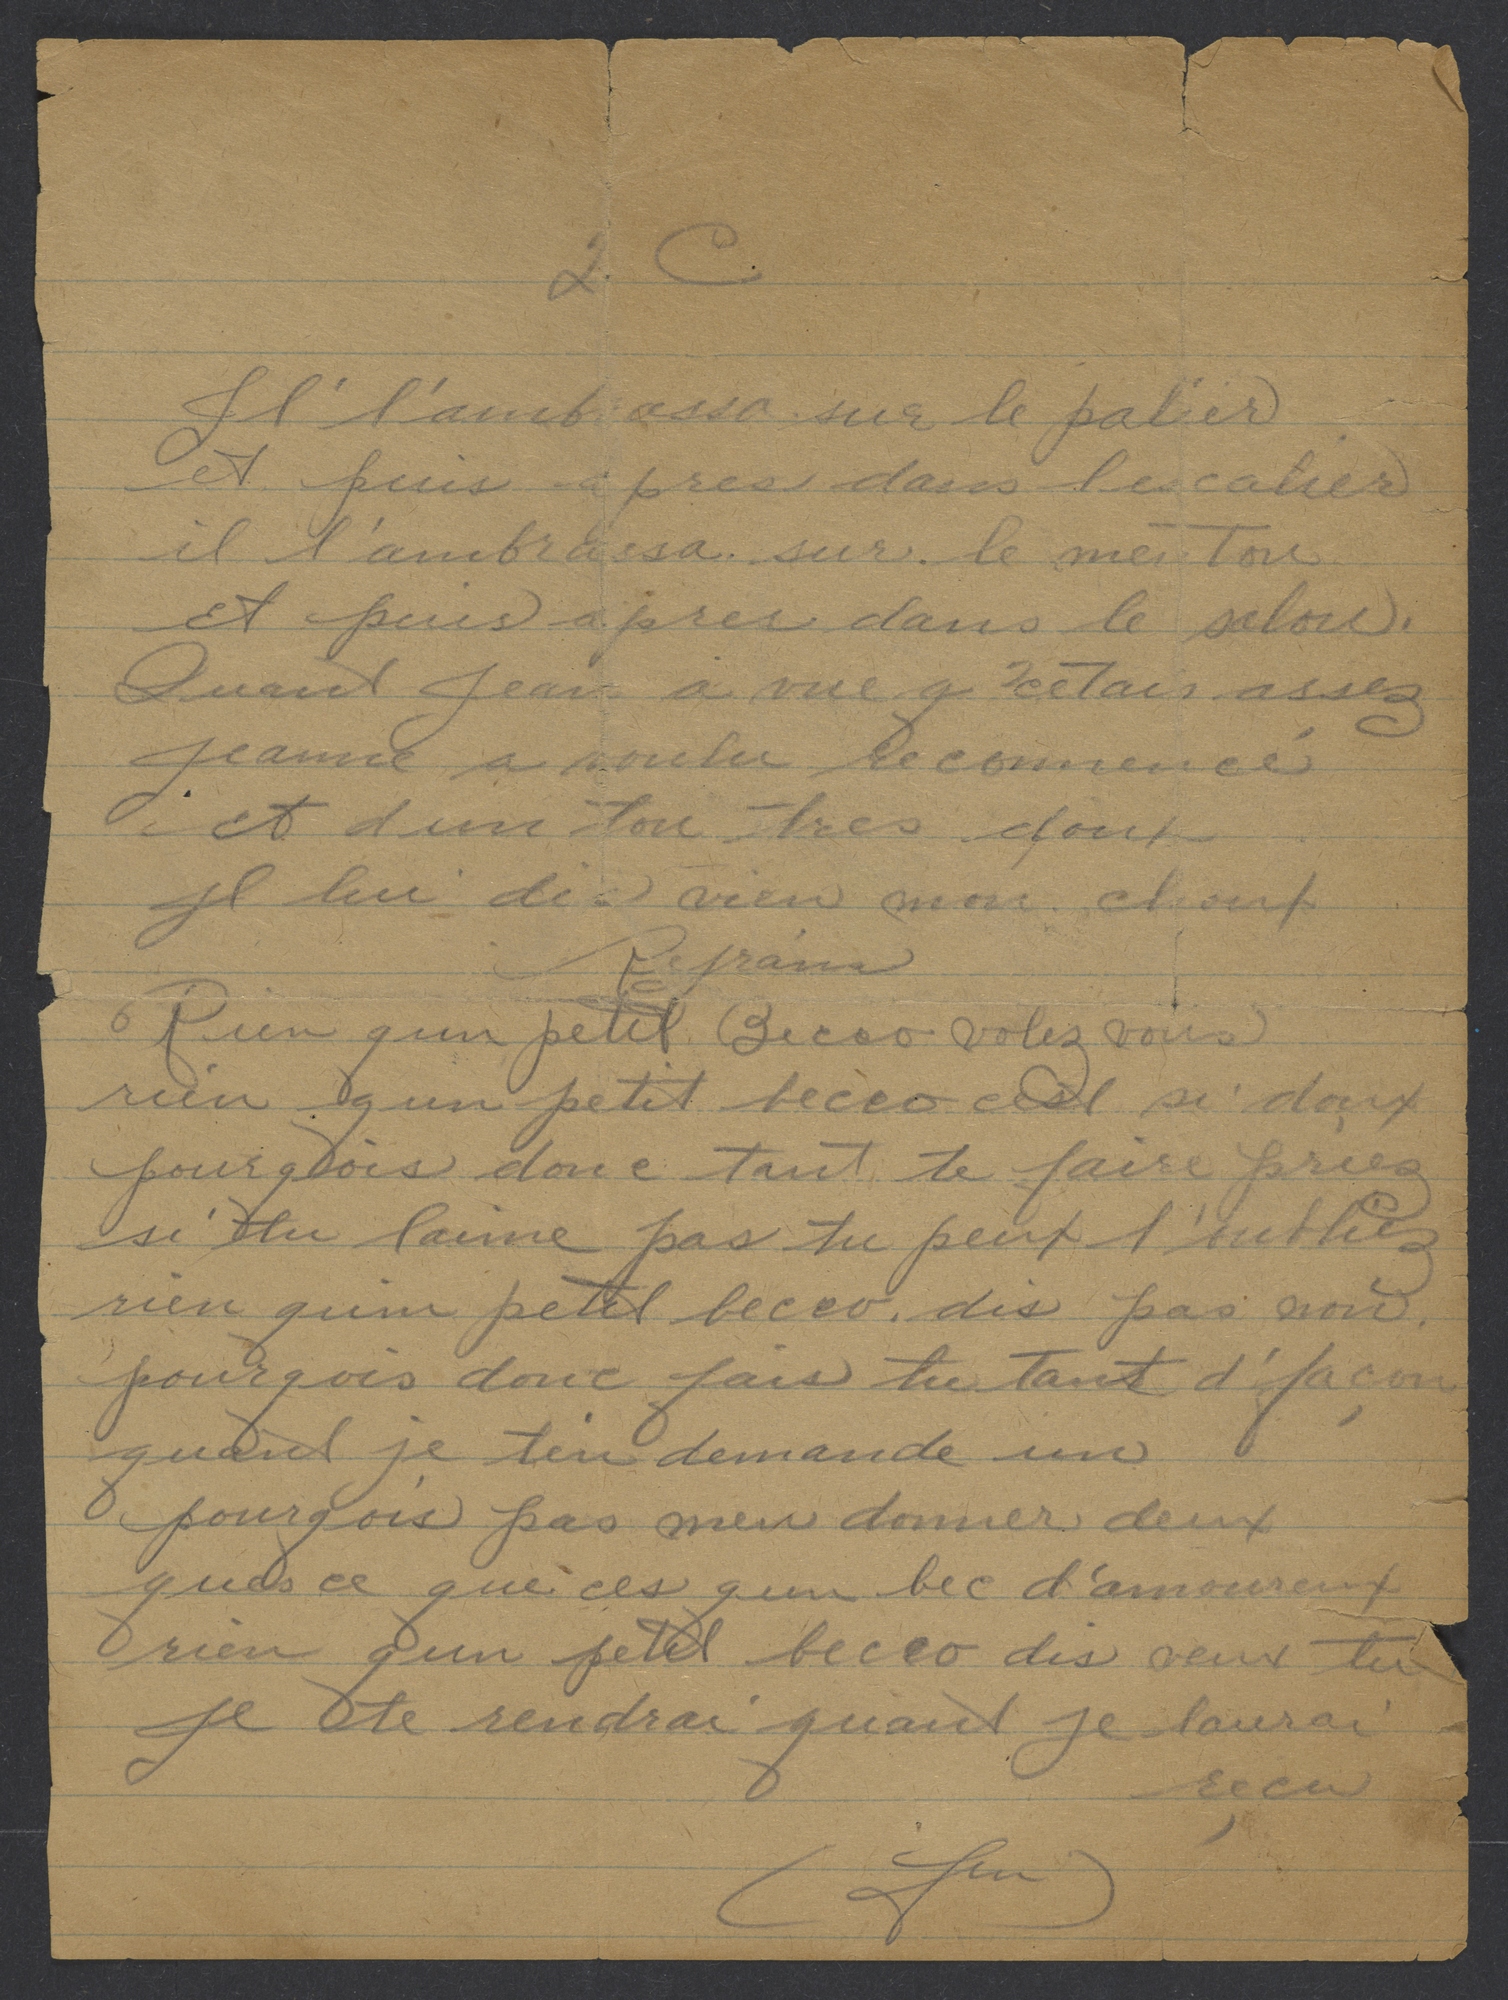 2 C
Il l'ambrassa sur le palier
et puis apres dans lescalier
il l'ambrassa sur le menton
et puis apres dans le salon.
Quant Jean a vue q cetais assez
Jeanne a voulu recommencé
et dun ton tres doux
Il lui dis vien mon choux
Refrain
6 Rien qun petit Becco volez vous
rien qun petit becco cest si doux
pourqois donc tant te faire priez
si tu laime pas tu peux l'oubliez
rien quin petit becco. dis pas non.
pourqois donc fais tu tant d'façon
quant je ten demande un
pourqois pas men donner deux
ques ce que ces qun bec d'amoureux
rien qun petit becco dis veux tu
Je te rendrai quant je laurai
reçu
(fin)